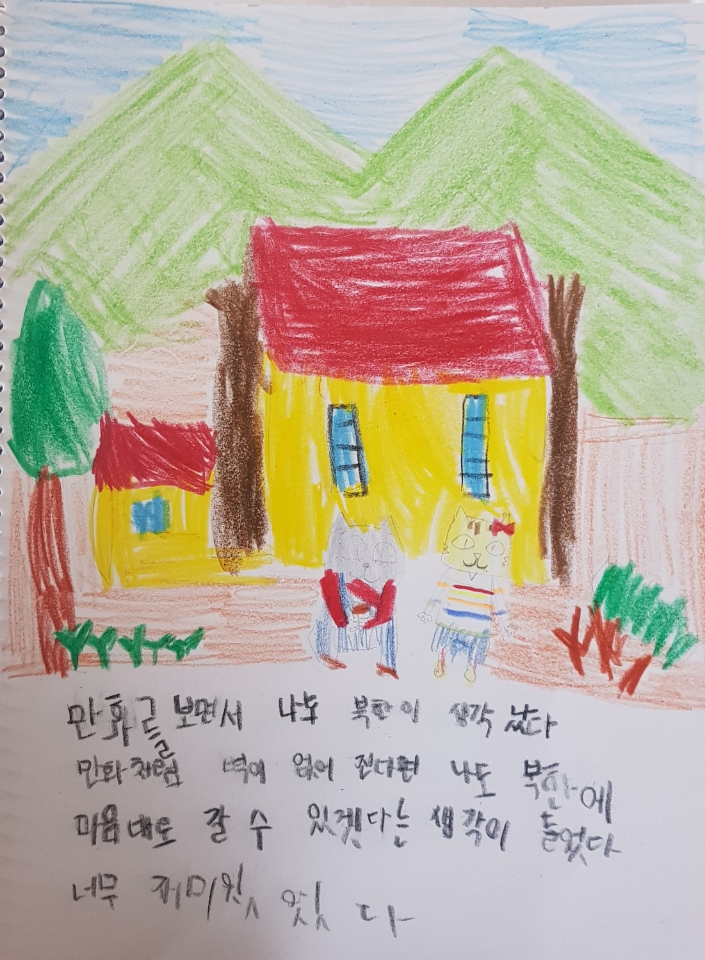 만화를 보면서 나도 북한이 생각 났다
만화처럼 벽이 없어 진다면 나도 북한에
마음대로 갈 수 있겠다는 생각이 들었다
너무 재미있었다